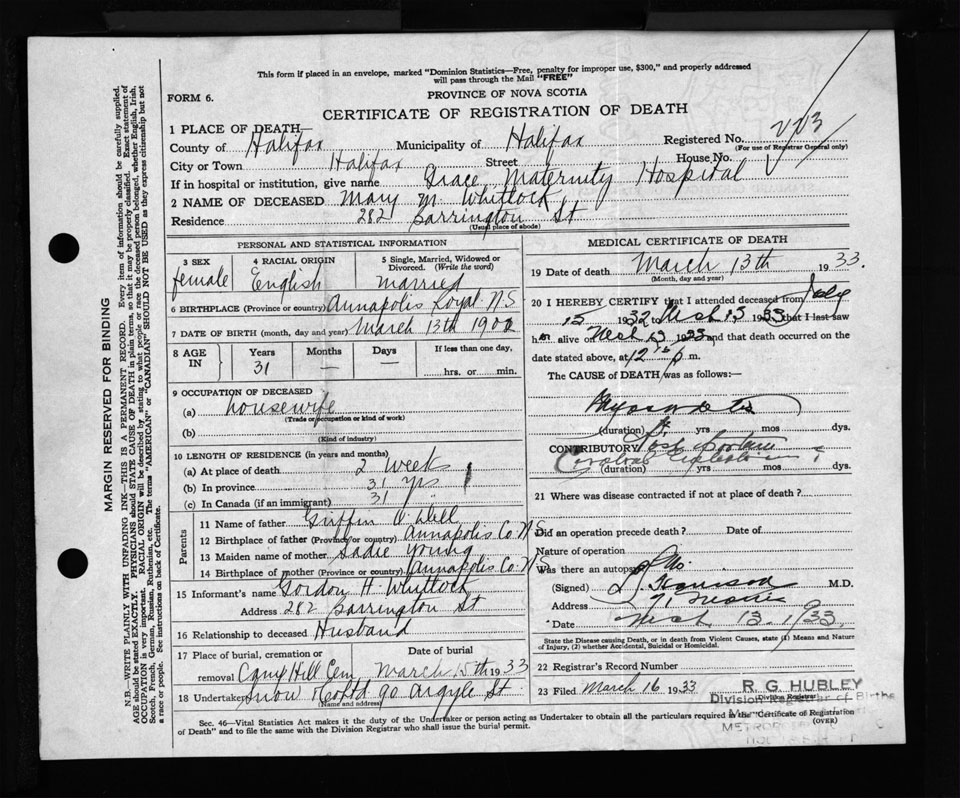 This form if placed in an envelope, marked "Dominion Statistics—Free, penalty for improper use, $300," and properly addressed
will pass through the Mail "FREE"
FORM 6.
PROVINCE OF NOVA SCOTIA
CERTIFICATE OF REGISTRATION OF DEATH
1 PLACE OF DEATH—
County of Halifax Municipality of Halifax Registered No.
(For use of Registrar General only)
City or Town Halifax Street House No.
If in hospital or institution, give name Grace Maternity Hospital
2 NAME OF DECEASED Mary M. Whitlock
Residence 282 Barrington St
(Usual place of abode)
PERSONAL AND STATISTICAL INFORMATION
3 SEX 4 RACIAL ORIGIN 5 Single, Married, Widowed or
Divorced. (Write the word)
female English Married
6 BIRTHPLACE (Province or country) Annapolis Royal N.S
7 DATE OF BIRTH (month, day and year) March 13th 1902
8 AGE IN Years Months Days If less than one day,
31 — — hrs. or min.
9 OCCUPATION OF DECEASED
(a) housewife
(Trade or occupation or kind of work)
(b)
(Kind of industry)
10 LENGTH OF RESIDENCE (in years and months)
(a) At place of death 2 weeks
(b) In province 31 yrs
(c) In Canada (if an immigrant) 31 "
Parents
11 Name of father Griffin
12 Birthplace of father (Province or country) Annapolis Co N.S
13 Maiden name of mother Sadie Young
14 Birthplace of mother (Province or Country) Annapolis Co N.S
15 Informant's name Gordon H. Whitlock
Address 282 Barrington St
16 Relationship to deceased Husband
17 Place of burial, cremation or Date of burial
removal Camp Hill Cem March 15th 1933
18 Undertaker Snow & Co Ltd 90 Argyle St.
(Name and address)
MEDICAL CERTIFICATE OF DEATH
19 Date of death March 13th 1933.
(Month, day and year)
20 I HEREBY CERTIFY that I attended deceased from July
15 1932 to Mch 13 1933 that I last saw
her alive Mch 13 1933 and that death occurred on the
date stated above, at 12 m.
The CAUSE of DEATH was as follows:—
Myocarditis
(duration) yrs mos dys.
CONTRIBUTORY Post Partum
(duration) yrs mos dys.
21 Where was disease contracted if not at place of death?
Did an operation precede death? Date of
Nature of operation
Was there an autopsy? No.
(Signed) M.D.
Address
Date Mch 13. 1933.
State the Disease causing Death, or in death from Violent Causes, state (1) Means and Nature
of Injury, (2) whether Accidental, Suicidal or Homicidal.
22 Registrar's Record Number
23 Filed March 16 1933 R. G. HUBLEY
Division Registrar
Division Registrar of Births
Sec. 46—Vital Statistics Act makes it the duty of the Undertaker or person acting as Undertaker to obtain all the particulars required in the "Certificate of Registration
of Death" and to file the same with the Division Registrar who shall issue the burial permit.
(OVER)
MARGIN RESERVED FOR BINDING
N.B.—WRITE PLAINLY WITH UNFADING INK—THIS IS A PERMANENT RECORD. Every item of information should be carefully supplied.
AGE should be stated EXACTLY. PHYSICIANS should STATE CAUSE OF DEATH in plain terms, so that it may be properly classified. Exact statement of
OCCUPATION is very important. RACIAL ORIGIN will be described by stating to what people or race the deceased person belonged, whether English, Irish,
Scotch, French, German, Russian, Ruthenian, etc. The terms "AMERICAN" or "CANADIAN" SHOULD NOT BE USED as they express citizenship but not
a race or people. See instructions on back of Certificate.